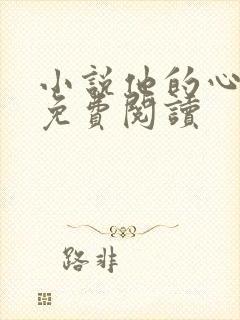 小說他的心
免費閱讀
路非